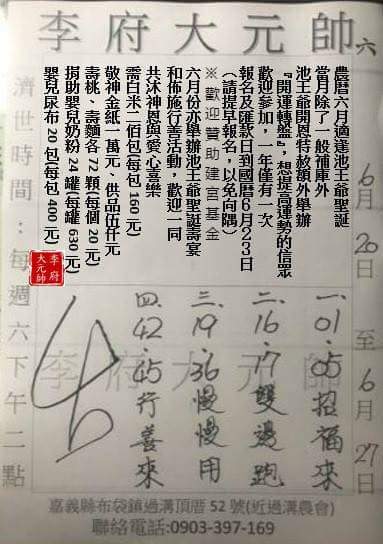 李府大元帥
六
農曆六月適逢池王爺聖誕
當月除了一般補庫外
池王爺開恩特赦額外舉辦
『開運轉盤』，想提高運勢的信眾
歡迎參加，一年僅有一次
報名及匯款日到國曆6月23日
（請提早報名，以免向隅）
※歡迎贊助建宮基金
六月份亦舉辦池王爺聖誕壽宴
和佈施行善活動，歡迎一同
共沐神恩與愛心喜樂
需白米二佰包(每包160元)
敬神金紙一萬元、供品伍仟元
壽桃、壽麵各72顆(每個20元)
捐助嬰兒奶粉24罐(每罐630元)
嬰兒尿布20包(每包400元)
李府
大元帥
6月20日至6月27日
李府大元帥
一.01.05招福來
二.16.17雙邊跑
三.19.36慢慢用
四.42.45行善來
濟世時間：每週六下午二點
嘉義縣布袋鎮過溝頂厝52號(近過溝農會)
聯絡電話:0903-397-169